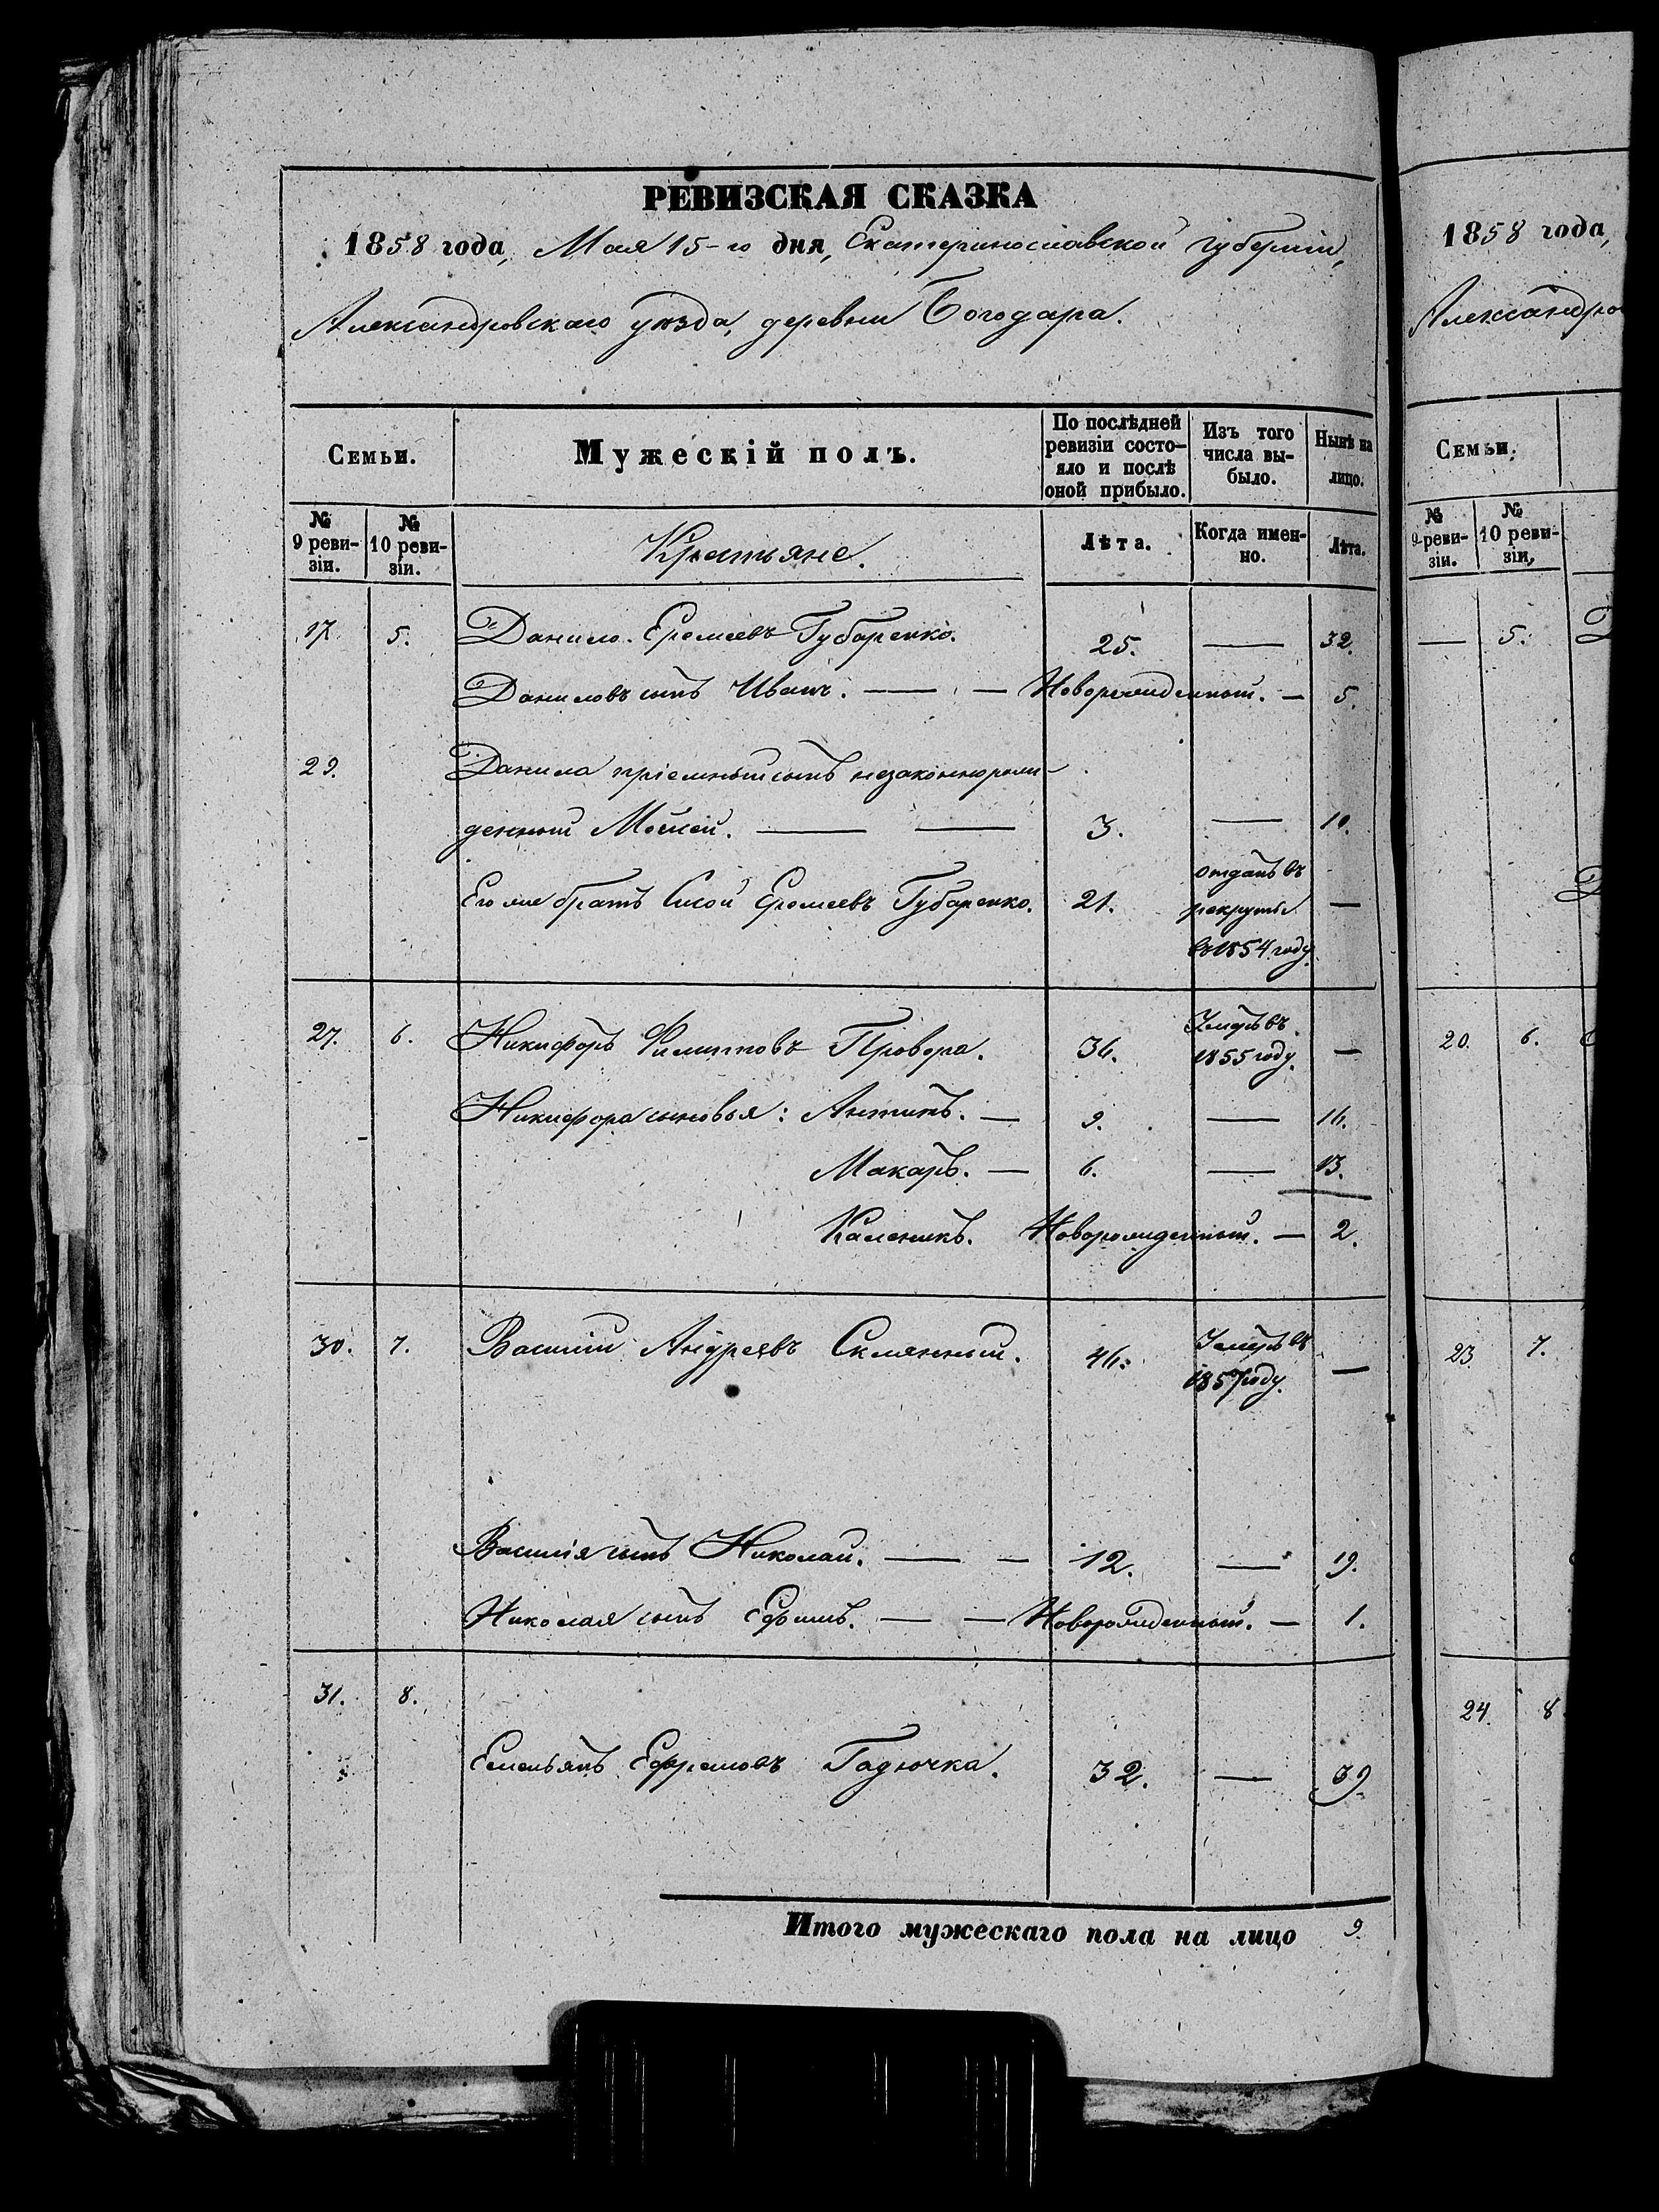 РЕВИЗСКАЯ СКАЗКА
1858 года, Мая 15-го дня, Екатеринославской губерніи,
Александровскаго уѣзда, деревни Богодара.
Семьи. Мужескій полъ. По послѣдней ревизіи состояло и послѣ оной прибыло. Изъ того числа выбыло. Нынѣ на лицо.
№ 9 ревизіи. № 10 ревизіи. Крестьяне. Лѣта. Когда именно. Лѣта.
17. 5. Данило Еремеевъ Губаренко. 25. — 32.
Даниловъ сынъ Иванъ. — — Новорожденный. — 5.
29. Данила пріемный сынъ незаконнорож-
денный Мойсей. — — 3. — 10.
Его же братъ Сисой Еремеевъ Губаренко. 21. отданъ въ рекруты въ 1854 году —
27. 6. Никифоръ Филиповъ Провора. 36. Умеръ въ 1855 году. —
Никифора сыновья: Антипъ. — 9. — 16.
Макаръ. — 6. — 13.
Каленикъ. Новорожденный. — 2.
30. 7. Василій Андреевъ Склянный. 46. Умеръ въ 1857 году. —
Василія сынъ Николай. — — 12. — 19.
Николая сынъ Ефимъ. — — Новорожденный. — 1.
31. 8.
Емельянъ Ефремовъ Гадючка. 32. — 39.
Итого мужескаго пола на лицо 9.
1858 года,
Александро
Семьи.
№ 9 ревизіи. № 10 ревизіи,
— 5.
20. 6.
23. 7.
24. 8